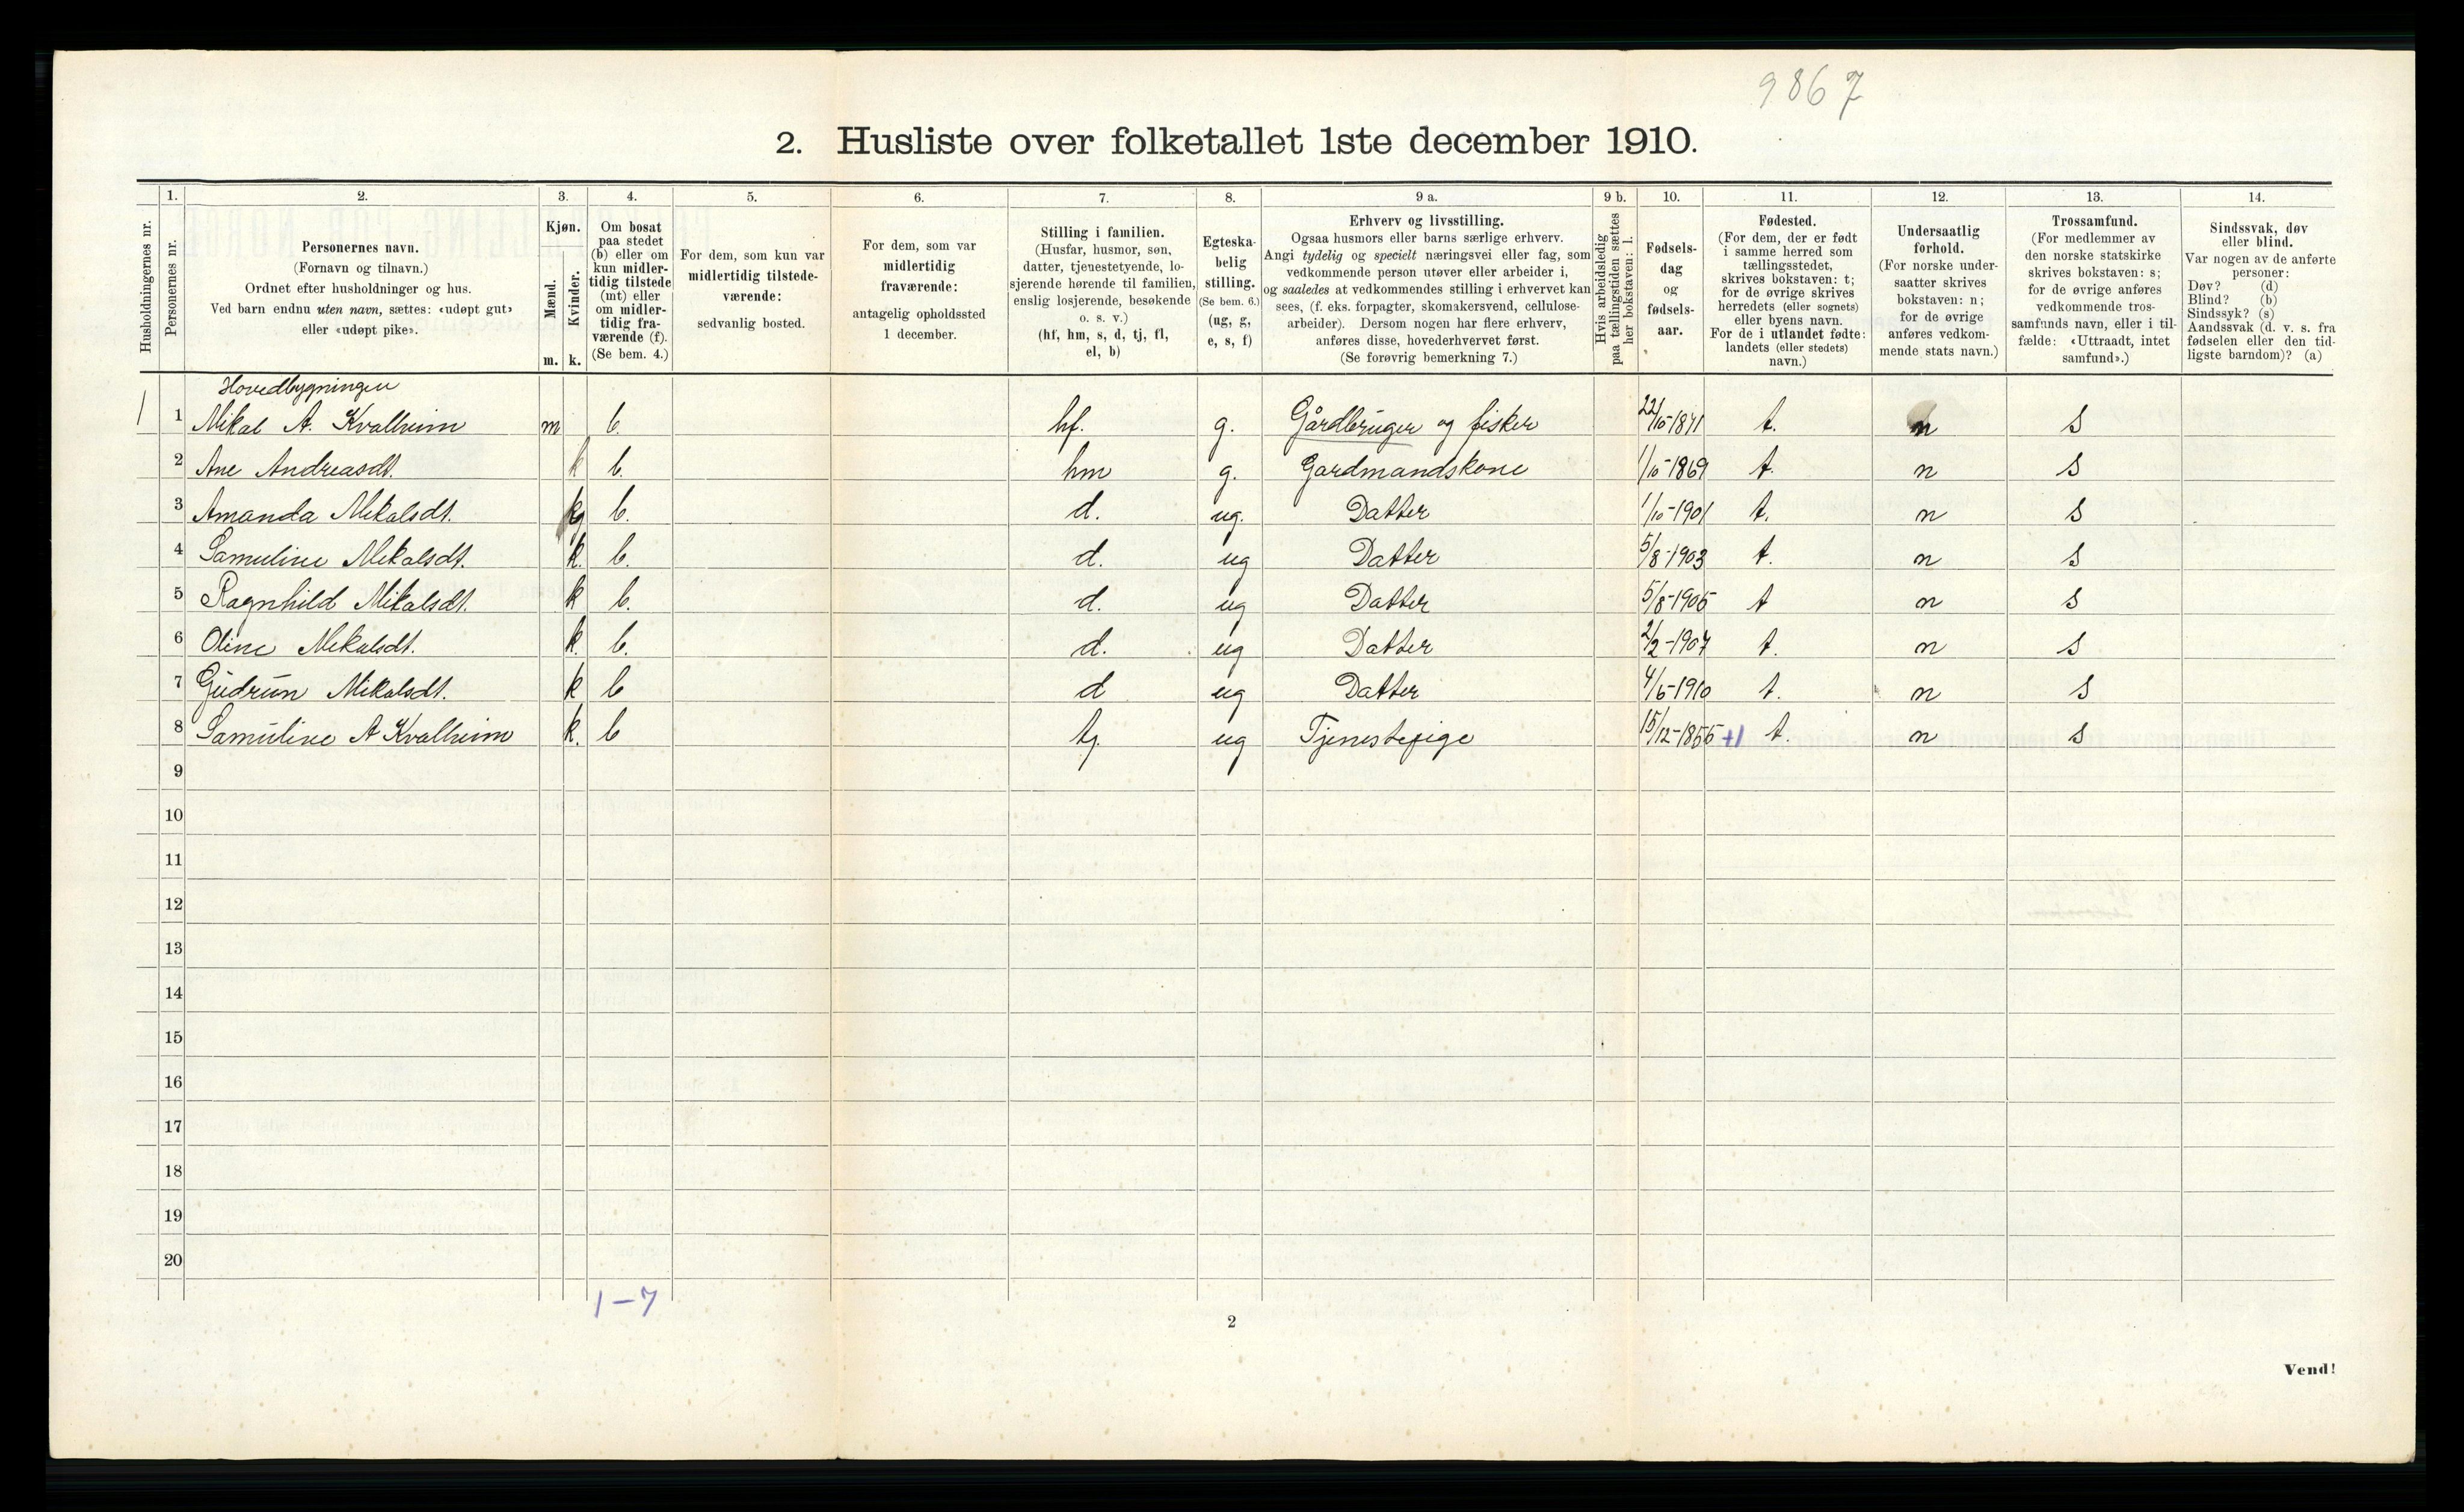 9867
2. Husliste over folketallet 1ste december 1910.
Husholdningernes nr.
1. Personernes nr.
2. Personernes navn. (Fornavn og tilnavn.) Ordnet efter husholdninger og hus. Ved barn endnu uten navn, sættes: «udøpt gut» eller «udøpt pike».
3. Kjøn. Mænd. m. Kvinder. k.
4. Om bosat paa stedet (b) eller om kun midlertidig tilstede (mt) eller om midlertidig fraværende (f). (Se bem. 4.)
5. For dem, som kun var midlertidig tilstedeværende: sedvanlig bosted.
6. For dem, som var midlertidig fraværende: antagelig opholdssted 1 december.
7. Stilling i familien. (Husfar, husmor, søn, datter, tjenestetyende, losjerende hørende til familien, enslig losjerende, besøkende o. s. v.) (hf, hm, s, d, tj, fl, el, b)
8. Egteskabelig stilling. (Se bem. 6.) (ug, g, e, s, f)
9 a. Erhverv og livsstilling. Ogsaa husmors eller barns særlige erhverv. Angi tydelig og specielt næringsvei eller fag, som vedkommende person utøver eller arbeider i, og saaledes at vedkommendes stilling i erhvervet kan sees, (f. eks. forpagter, skomakersvend, cellulosearbeider). Dersom nogen har flere erhverv, anføres disse, hovederhvervet først. (Se forøvrig bemerkning 7.)
9 b. Hvis arbeidsledig paa tællingstiden sættes her bokstaven: l.
10. Fødselsdag og fødselsaar.
11. Fødested. (For dem, der er født i samme herred som tællingsstedet, skrives bokstaven: t; for de øvrige skrives herredets (eller sognets) eller byens navn. For de i utlandet fødte: landets (eller stedets) navn.)
12. Undersaatlig forhold. (For norske undersaatter skrives bokstaven: n; for de øvrige anføres vedkommende stats navn.)
13. Trossamfund. (For medlemmer av den norske statskirke skrives bokstaven: s; for de øvrige anføres vedkommende trossamfunds navn, eller i tilfælde: «Uttraadt, intet samfund».)
14. Sindssvak, døv eller blind. Var nogen av de anførte personer: Døv? (d) Blind? (b) Sindssyk? (s) Aandssvak (d. v. s. fra fødselen eller den tidligste barndom)? (a)
Hovedbygningen
1 1 Mikal A. Kvalheim m b. hf. g. Gårdbruger og fisker 22/10-1871 t. n s
2 Ane Andreasdt. k b. hm g. Gardmandskone 1/10-1869 t. n s
3 Amanda Mikalsdt. k b. d. ug. Datter 1/10-1901 t. n s
4 Samuline Mikalsdt. k. b. d. ug Datter 5/8-1903 t. n s
5 Ragnhild Mikalsdt. k b. d. ug Datter 5/8-1905 t n s
6 Oline Mikalsdt. k. b. d. ug Datter 2/2-1907 t. n s
7 Gudrun Mikalsdt. k b d ug Datter 4/6-1910 t. n s
8 Samuline A Kvalheim k. b tj. ug Tjenestepige 15/12-1855 +1 t. n s
9
10
11
12
13
14
15
16
17
18
19
20
1-7
2
Vend!